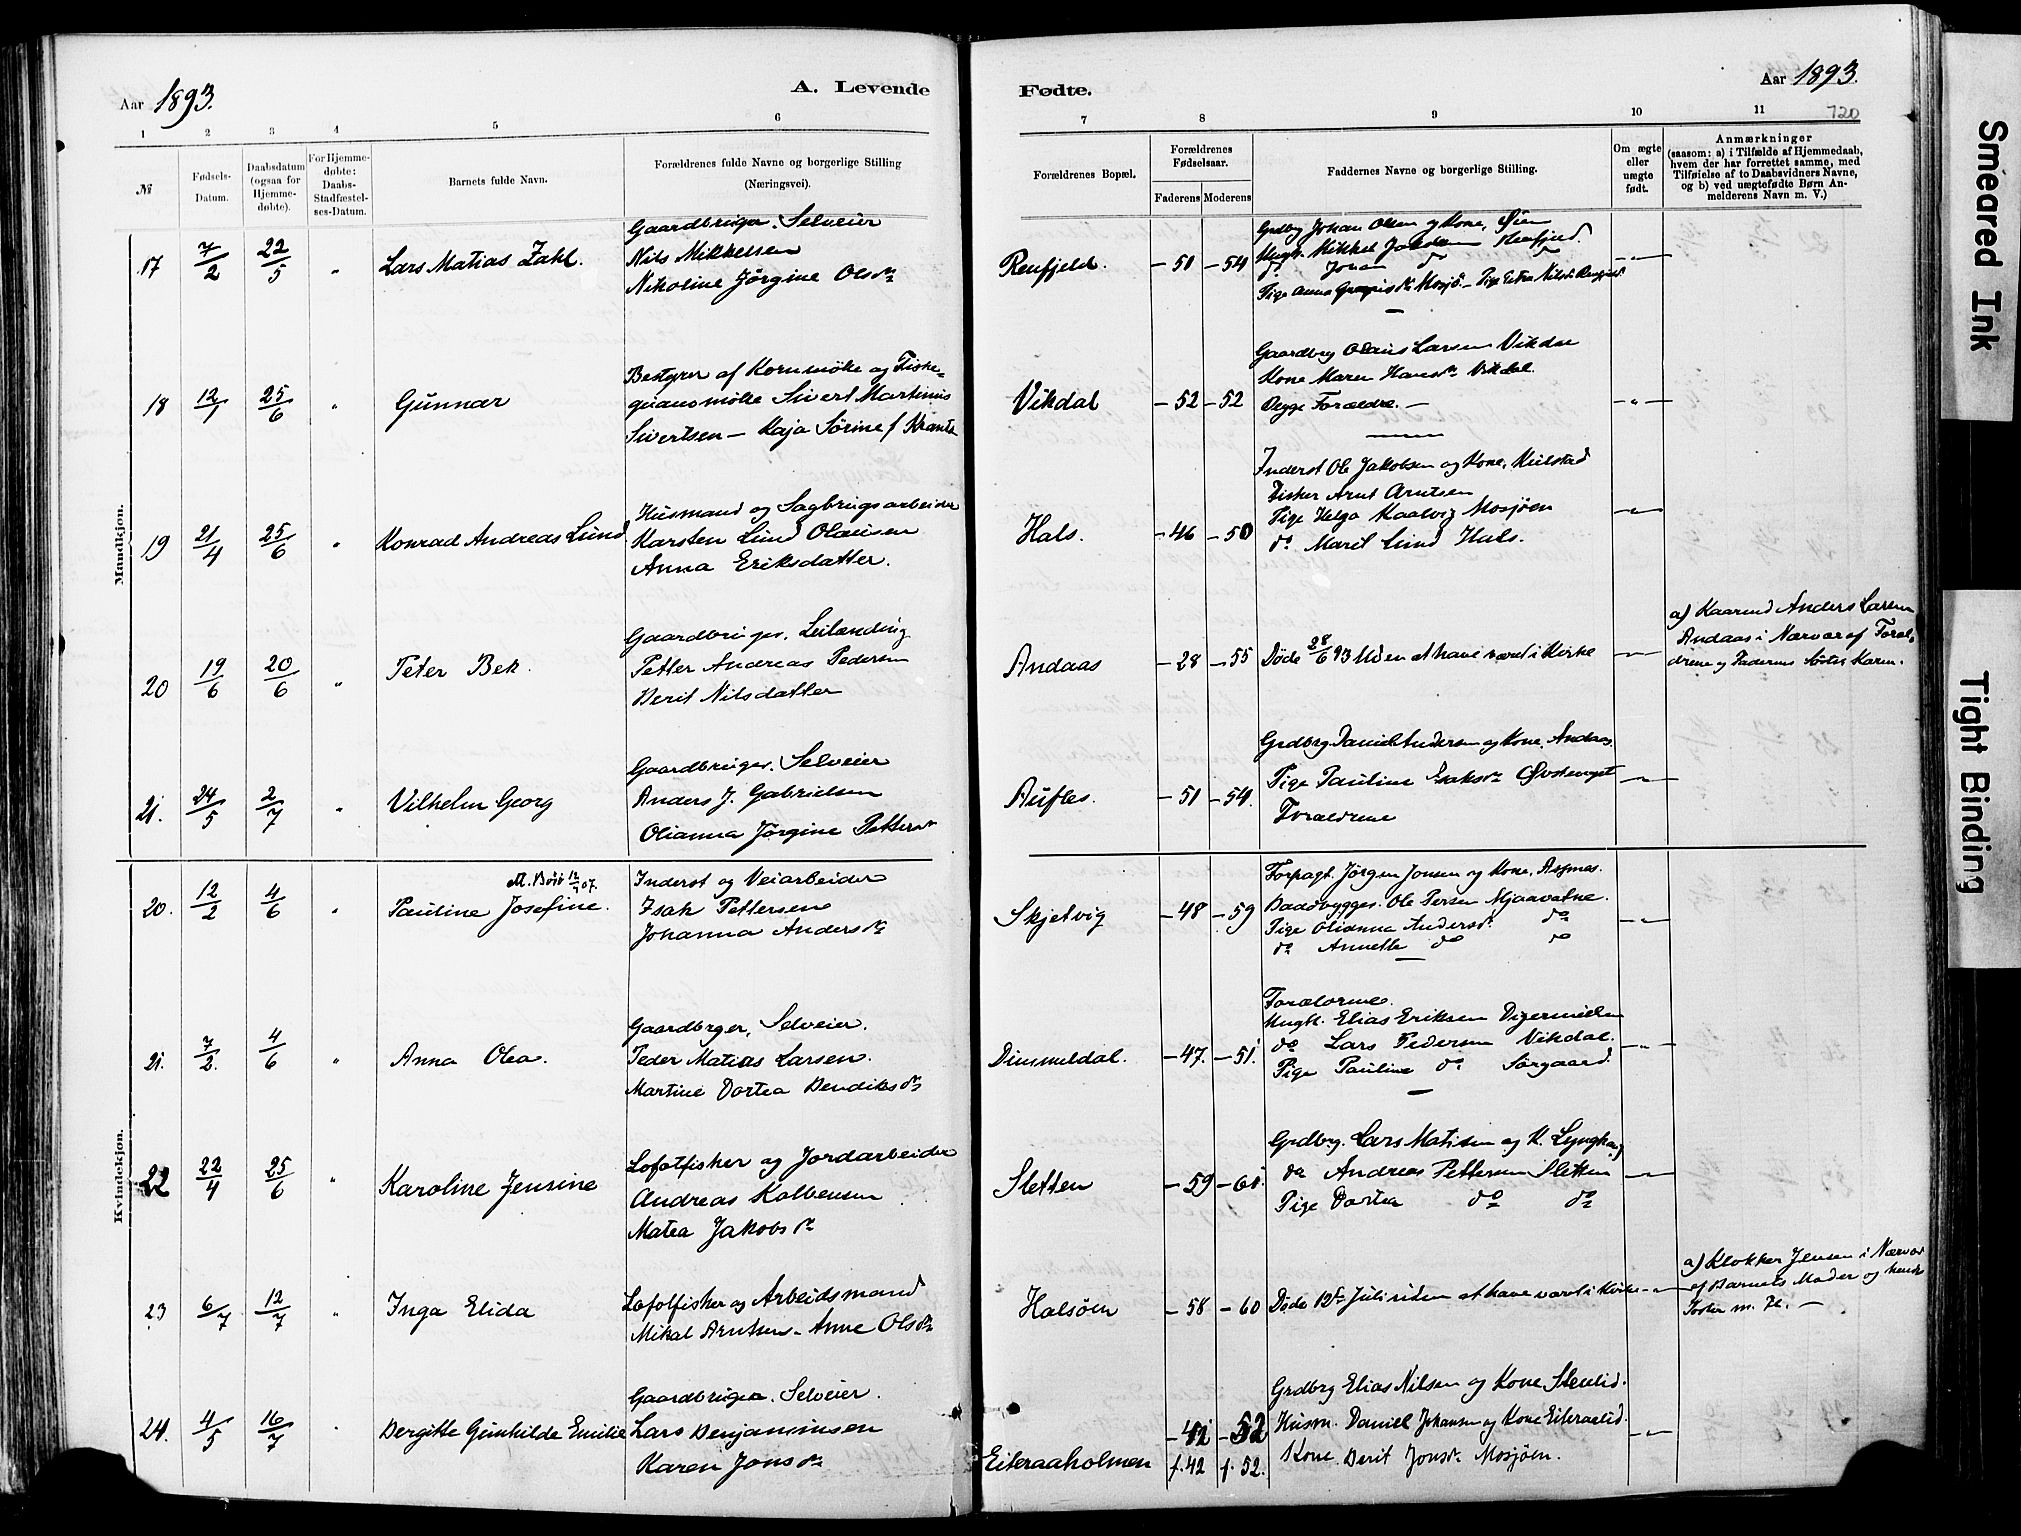 Aar 1893.
A. Levende
Fødte.
Aar 1893.
120
1 2 3 4 5 6 7 8 9 10 11
№
Fødsels-
Datum.
Daabsdatum
(ogsaa for
Hjemme-
døbte).
For Hjemme-
døbte:
Daabs-
Stadfæstel-
ses-Datum.
Barnets fulde Navn.
Forældrenes fulde Navne og borgerlige Stilling
(Næringsvei).
Forældrenes Bopæl.
Forældrenes
Fødselsaar.
Faderens Moderens
Faddernes Navne og borgerlige Stilling.
Om ægte
eller
uægte
født.
Anmærkninger
(saasom: a) i Tilfælde af Hjemmedaab,
hvem der har forrettet samme, med
Tilføielse af to Daabsvidners Navne,
og b) ved uægtefødte Børn An-
melderens Navn m. V.)
Mandkjøn.
17 7/2 22/5 " Lars Matias Zahl.
Gaardbruger, Selveier
Nils Mikkelsen
Nikoline Jørgine Olsdr
Renfjeld. - 51 - 54
Grdbrg Johan Olsen og Kone, Øien
Ungk. Mikkel
do Johan do do
Tige Anna
-"-
18 12/1 25/6 " Gunnar
Bestyrer af Kornmølle og Fiske-
guanomølle Sivert Martinus
Sivertsen - Kaja Sørine f Krantz
Vikdal - 52 - 52
Gaardbrg Olaus Larsen Vikdal
Kone Maren Hansdr Vikdal.
Begge Forældre. -
-"-
19 21/4 25/6 " Konrad Andreas Lund
Husmand og Sagbrugsarbeider
Karsten Lund Olausen
Anna Eriksdatter.
Hals. - 46 - 50
Inderst Ole Jakobsen og Kone, Kulstad
Fisker Arnt Arntsen
Pige Helga Kaalvig Mosjøen
do Marit Lund Hals.
-"-
20 19/6 20/6 " Peter Bek.
Gaardbruger, Leilænding
Petter Andreas Pedersen
Berit Nilsdatter
Andaas - 28 - 55
Døde 28/6 93 Uden at have været i Kirke
-"-
a) Kaarmd Anders Larsen
Andaas i Nærvær af Foræl-
drene og Faderens Søster Karen.
21. 24/5 2/7 " Vilhelm Georg
Gaardbruger. Selveier
Anders J. Gabrielsen
Olianna Jørgine Pettersdr
Aufles. - 51 - 54.
Grdbrg Daniel Andersen og Kone, Andaas.
Pige Pauline Esaksdr Øvstenget
Forældrene
-"-
Kvindekjøn.
20. 12/2 4/6 " Pauline Josefine.
Inderst og Veiarbeider
Isak Pettersen
Johanna Andersdr
Skjetvig - 48 - 59
Forpagt. Jørgen Jonsen og Kone, Aspnes.
Baadbygger. Ole Persen Mjaavatne.
Pige Olianna Andersdr. do
do Annette do do
-"-
21. 7/2. 4/6 " Anna Olea.
Gaardbrger, Selveier.
Peder Matias Larsen.
Martine Dortea Bendiksdr
Dimmeldal. - 47. - 51.
Forældrene.
Ungk. Elias Eriksen Digermulen
do Lars Pedersen Vikdal.
Pige Pauline do Sørgaard.
-"-
22 22/4 25/6 " Karoline Jensine
Lofotfisker og Jordarbeider
Andreas Kolbensen
Matea Jakobsdr
Sletten - 59 - 60
Grdbrg. Lars Matisen og K. Lynghaug
do Andreas Pettersen Sletten
Pige Dortea do do
-"-
23 6/7 12/7 " Inga Elida
Lofotfisker og Arbeidsmand
Mikal Arntsen - Anne Olsdr
Halsøen - 58 - 60
Døde 12te Juli uden at have været i Kirke
-"-
a) Klokker Jensen i Nærvær
af Barnets Moder og hendes
Søster m. fl. -
24. 4/5 16/7 " Bergitte Gunhilde Emilie
Gaardbruger, Selveier.
Lars Benjaminsen
Karen Jonsdr
Eiteraaholmen - 42 - 52
f. 42 f. 52.
Grdbrg Elias Nilsen og Kone Stenlid.
Husm. Daniel Johansen og Kone Eiteraalid.
Kone Berit Jonsdr Mosjøen.
-"-
Smeared Ink
Tight Binding